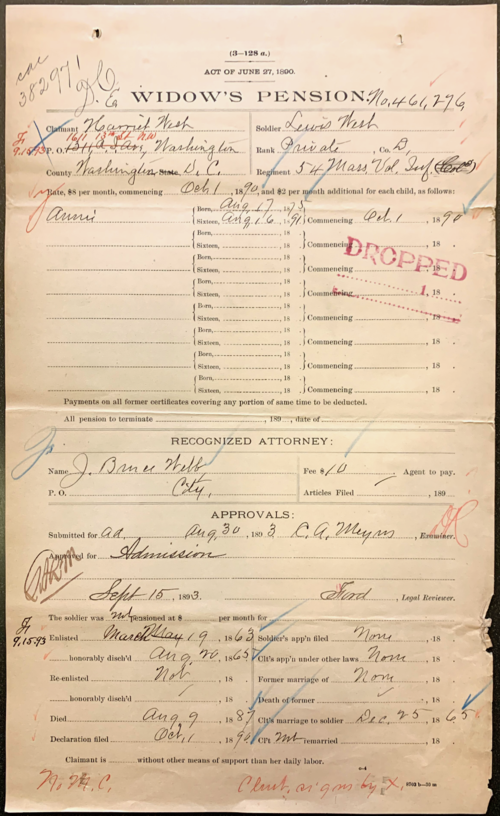 (3—128 a.)
ACT OF JUNE 27, 1890.
382971
WIDOW'S PENSION. No. 461,276
Claimant Harriet West
Soldier Lewis West
1611 13th St N.W.
P. O. Washington
Rank Private, Co. D,
County Washington, State D. C.
Regiment 54 Mass Vol. Inf.
9.15.93
Rate, $8 per month, commencing Oct 1, 1890, and $2 per month additional for each child, as follows:
Annie
Born, Aug 17, 1875
Sixteen, Aug 16, 1891
Commencing Oct 1, 1890.
Born, 18
Sixteen, 18
Commencing, 18
DROPPED
Born, 18
Sixteen, 18
Commencing, 18
Born, 18
Sixteen, 18
Commencing 1, 18
Born, 18
Sixteen, 18
Commencing, 18
Born, 18
Sixteen, 18
Commencing, 18
Born, 18
Sixteen, 18
Commencing, 18
Born, 18
Sixteen, 18
Commencing, 18
Payments on all former certificates covering any portion of same time to be deducted.
All pension to terminate, 189 , date of
RECOGNIZED ATTORNEY:
Name J. Bruce Webb
Fee $10 Agent to pay.
P. O. City,
Articles Filed, 189
APPROVALS:
Submitted for ad, Aug 30, 1893, C. A. Meyns, Examiner.
Approved for Admission
Sept 15, 1893. Ford, Legal Reviewer.
The soldier was not pensioned at $ per month for
9.15.93
Enlisted March May 19, 1863
Soldier's app'n filed None, 18
honorably disch'd Aug 20, 1865
Clt's app'n under other laws None, 18
Re-enlisted Not, 18
Former marriage of None, 18
honorably disch'd, 18
Death of former, 18
Died Aug 9, 1887
Clt's marriage to soldier Dec. 25, 1865
Declaration filed Oct 1, 1890
Cl't not remarried, 18
Claimant is without other means of support than her daily labor.
Clmt. signs by X.